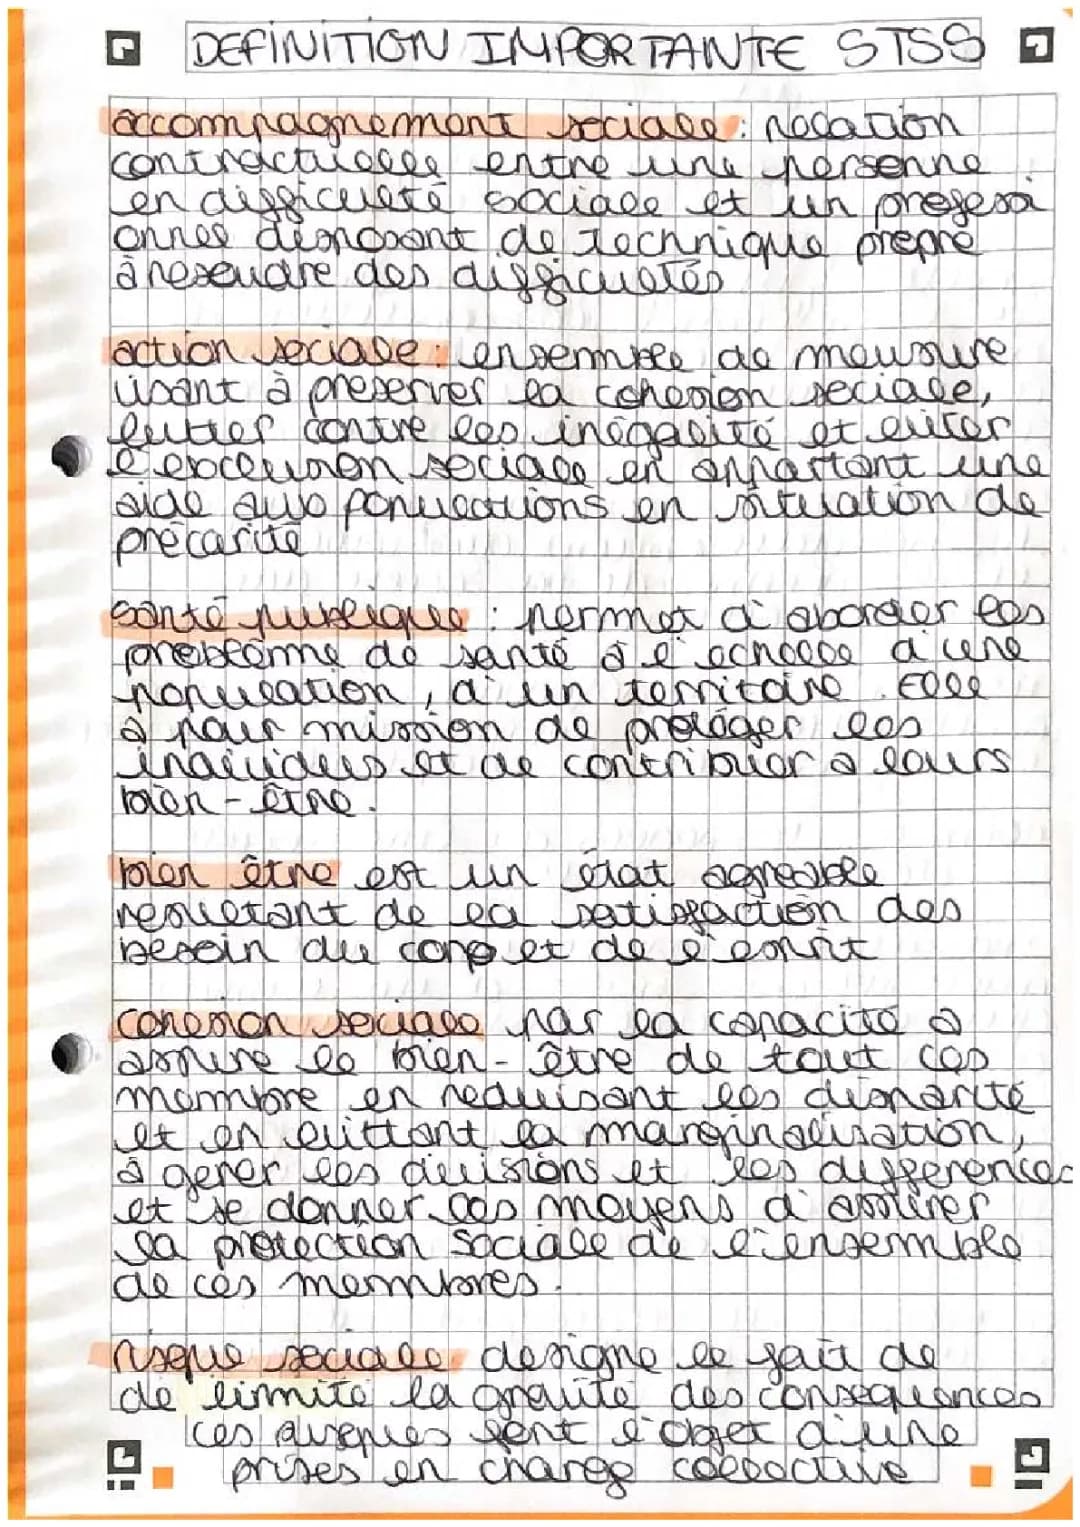 DEFINITION IMPORTANTE STSS
accompagnement sociale : relation
contractuelle entre une personne
en difficulté sociale et un professi
onnel disposant de technique propre
à résoudre des difficultés
action sociale : ensemble de mausure
visant à preserver la cohesion sociale,
lutter contre les inégalité et eviter
l'exclusion sociale en apportant une
aide aux populations en situation de
précarité
santé publique : permet d'aborder les
problème de santé à l'echelle d'une
population, d'un territoire. Elle
à pour mission de protéger les
individus et de contribuer a leurs
bien-être.
bien être est un état agreable
resultant de la satisfaction des
besoin du corp et de l'esprit
cohesion sociale par la capacité a
assure le bien-être de tout ces
membre en reduisant les disparité
et en evittant la marginalisation,
à gerer les divisions et les differences
et se donner les moyens d'assurer
la protection sociale de l'ensemble
de ces membres.
risque sociale designe le fait de
de limité la gravité des consequences
ces risques sont l'objet d'une
prises en charge collective